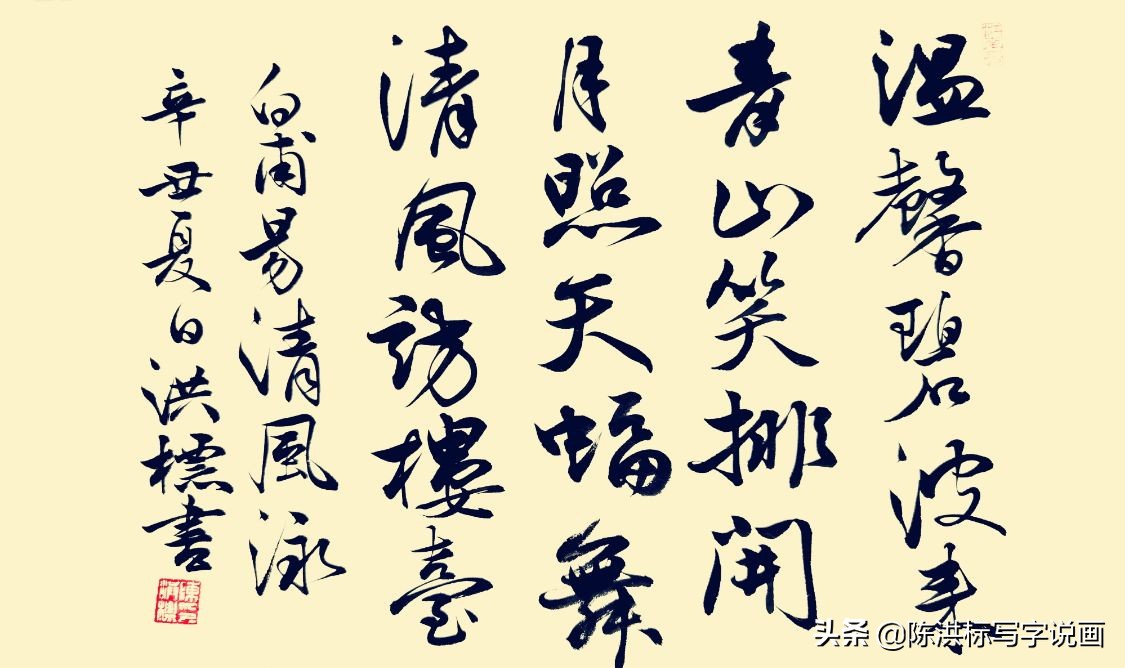 温馨碧波来
青山笑排開
月照天蝠舞
清風訪樓臺
白甫易清風泳
辛丑夏日洪標書
头条 @陈洪标写字说画